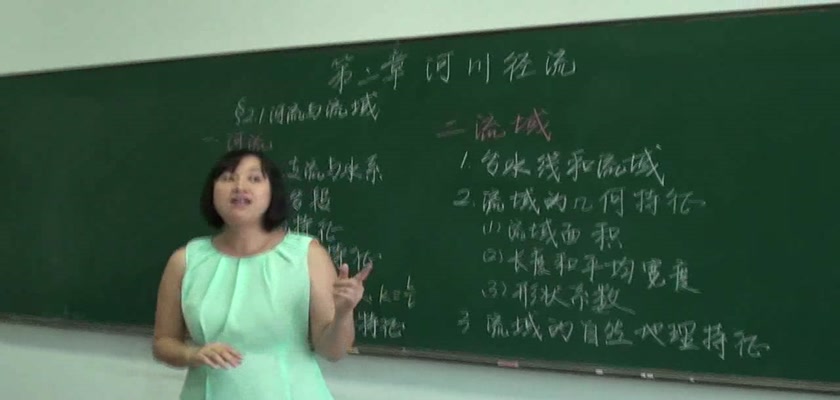 第二章 河川径流
§2.1 河流与流域
一 河流
支流与水系
分段
特征
特征
k=1/2
特征
二 流域
1. 分水线和流域
2. 流域的几何特征
(1) 流域面积
(2) 长度和平均宽度
(3) 形状系数
3 流域的自然地理特征